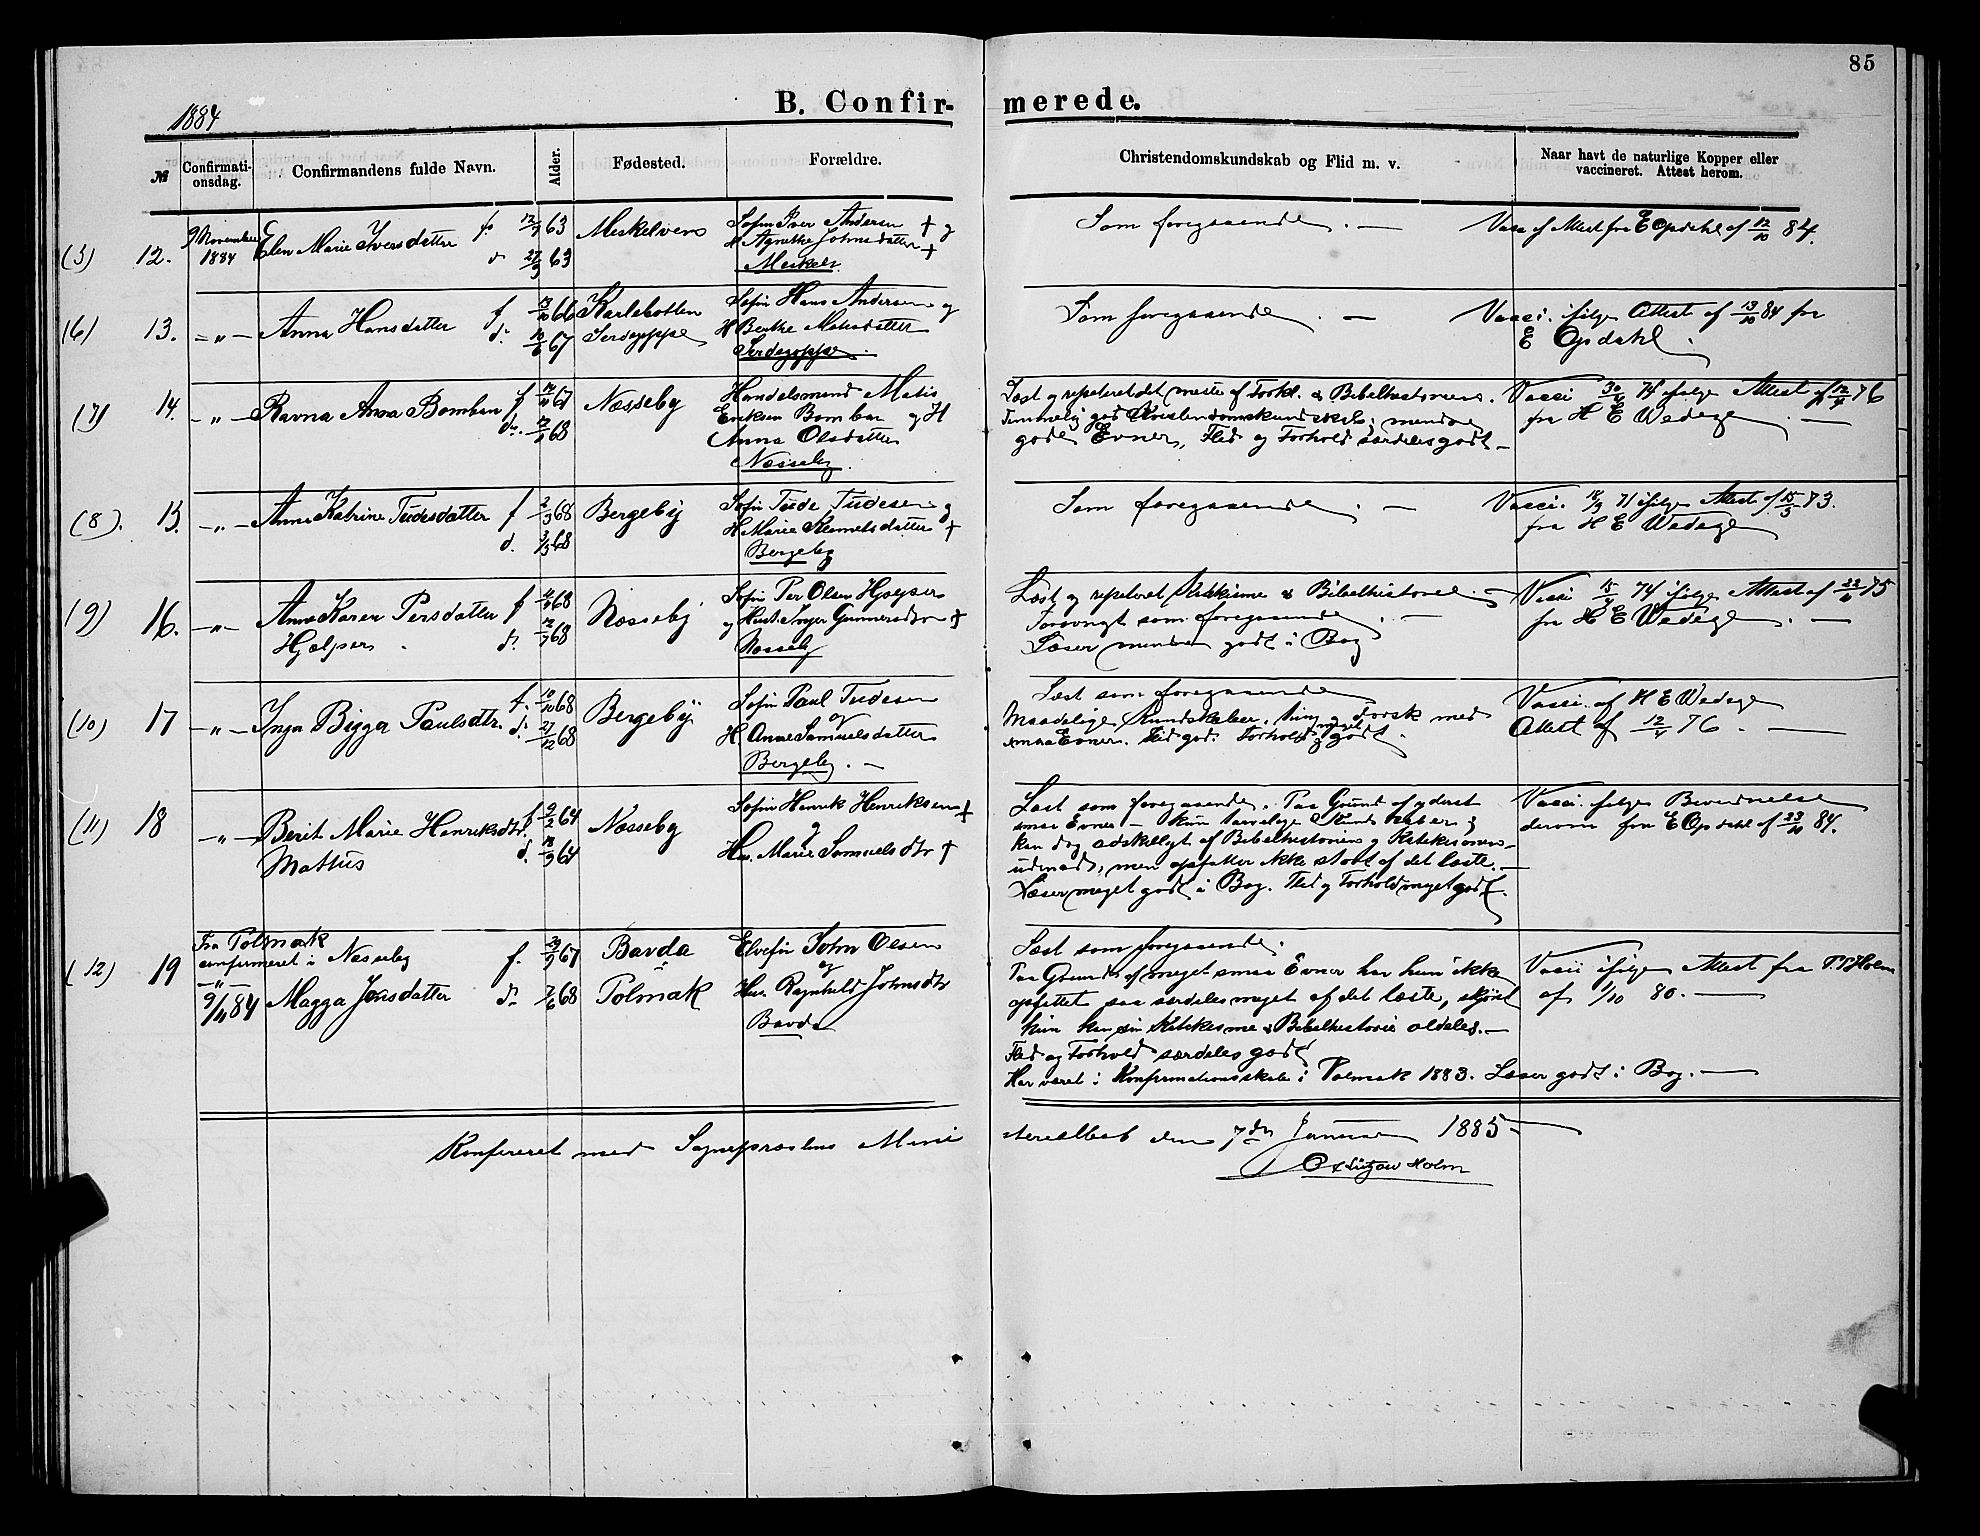 85
1884
B. Confir-
merede.
№
Confirmati-
onsdag.
Confirmandens fulde Navn.
Alder.
Fødested.
Forældre.
Christendomskundskab og Flid m. v.
Naar havt de naturlige Kopper eller
vaccineret. Attest herom.
12.
9 November
1884
Elen Marie Iversdatter
f.
63
d
63
Meskelvens
Søfin Iver Andersen † og
H Agnethe Johnsdatter †
Som foregaaende. —
Vacc if Attest fra E Opdahl af 12/10 84.
(6)
13.
Anna Hansdatter
f
13/10 66
d.
67
Karlebotten
Søfin Hans Andersen og
H Berthe Matisdatter
Som foregaaende. —
Vacci. ifølge Attest af 13/10 84 fra
E Opdahl.
(7)
14.
Ravna Anna Bomban
f
67
d.
68
Næsseby
Handelsmand Matis
Eriksen Bomban og H
Anna Olsdatter
Næsseby.
Læst og repeteret det meste af Forkl. & Bibelhistorien.
Temmelig god Kristendomskundskab; mindre
gode Evner, Flid og Forhold særdeles godt —
Vacci 74 ifølge Attest af 12/4 76
fra H E Wedege. —
(8).
15.
Anne Katrine Tudesdatter
f
2/3 68
d.
3/3 68
Bergeby
Søfin Tude Tudesen og
H Marie Klemetsdatter †
Bergeby
Som foregaaende. —
Vacci. 71 ifølge Attest af 73.
fra H E Wedege
(9)
16.
Anne Karen Persdatter
Hjelper.
f
68
d.
68
Næsseby
Søfin Per Olsen Hjelper
og Hust. Inger Gunnersdtr †
Næsseby
Læst og repeteret Katekisme & Bibelhistorie. —
Forøvrigt som foregaaende. —
Læser mindre godt i Bog
Vacci 74 ifølge Attest af 75
fra H E Wedege. —
(10)
17
Inga Bigga Paulsdtr.
f.
10/10 68
d.
27/12 68
Bergeby
Søfin Paul Tudesen
og
H. Anne Samuelsdatter
Bergeby. —
Læst som foregaaende
Maadelige Kundskaber. med
smaa Evner. Flid god. Forhold meget godt.
Vacci. af H E Wedege
Attest af 12/4 76. —
(11)
18
Berit Marie Henriksdtr.
Mattus
f
9/2 64
d.
64
Næsseby
Søfin Henrik Henriksen †
og
Hu. Marie Samuelsdtr †
Læst som foregaaende. Paa Grund af yderst
smaa Evner — kun Kundskaber;
kan dog adskilligt af Bibelhistorien og Katekismen
udenad, men opfatter ikke stort af det læste. —
Læser meget godt i Bog. Flid og Forhold meget godt.
Vacci. ifølge Bevidnelse
derom fra E Opdahl af 84.
(12)
19
Fra Polmak
confirmeret i Næsseby
9/11 84
Magga Jonsdatter
f.
67
d.
7/6 68
Bavda
Polmak
Elvefin John Olsen
og
Hu. Ragnhild Johnsdtr
Bavda
Læst som foregaaende.
Paa Grund af meget smaa Evner har hun ikke
opfattet saa særdeles meget af det læste, skjønt
hun kan sin Katekisme & Bibelhistorie aldeles. —
Flid og Forhold særdeles godt
Har været i Konfirmationsskole i Polmak 1883. Læser godt i Bog. —
Vacci ifølge Attest fra Holm
af 1/10 80. —
Konfereret med Sognepræstens Mini
sterialbog den 7de Januar 1885
Lützow Holm